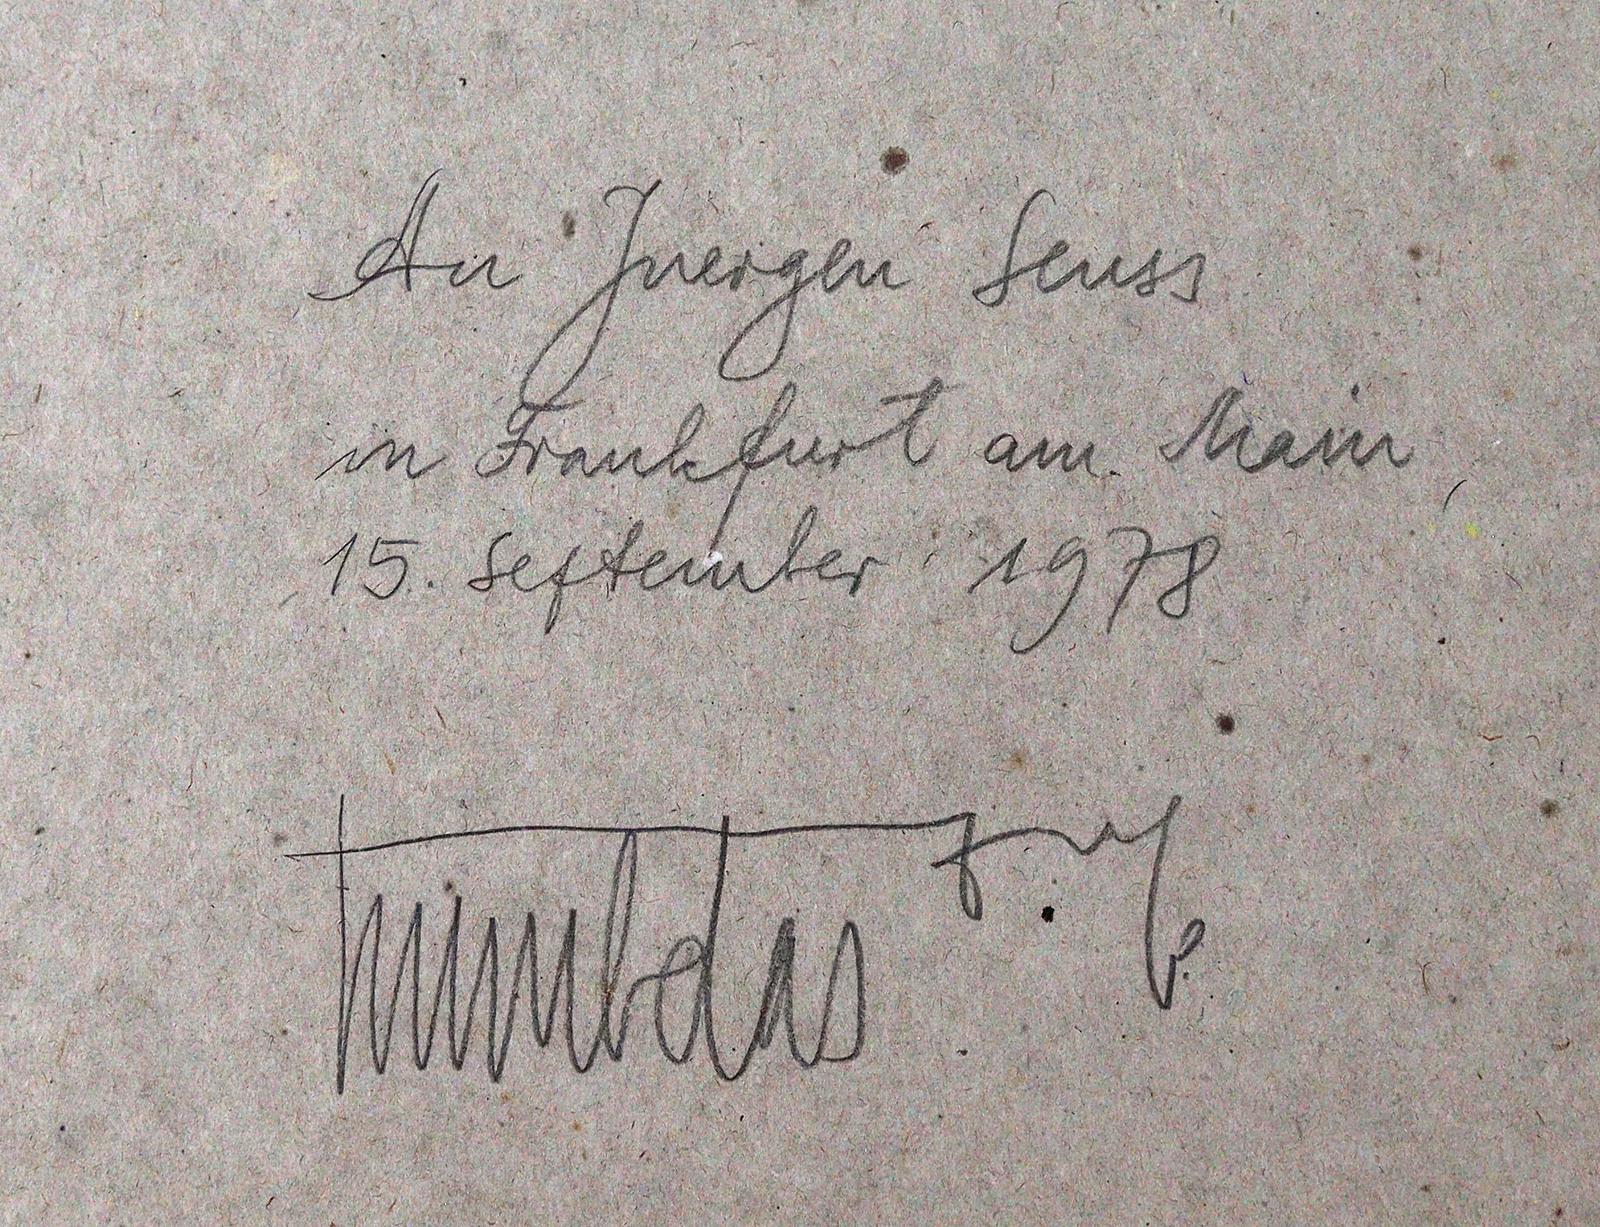 An Juergen Seuss
in Frankfurt am Main,
15. September 1978